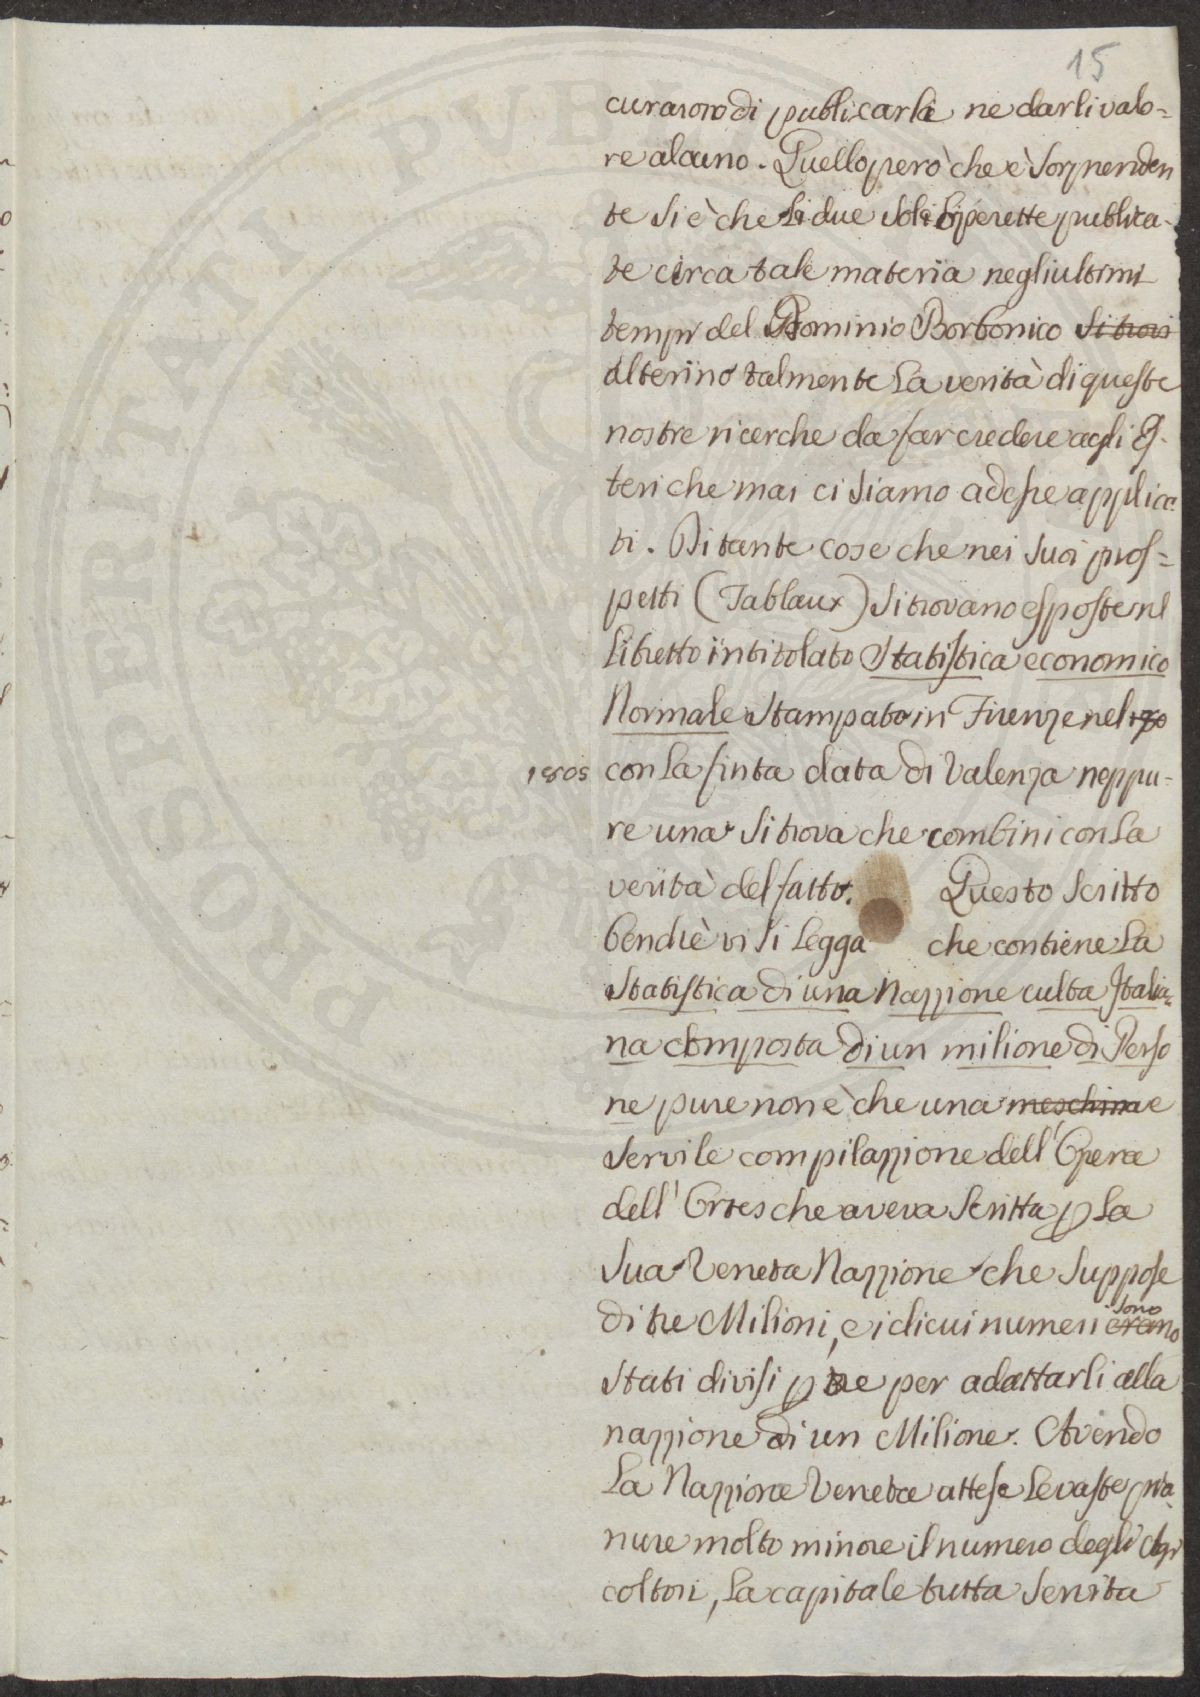 15
curarono di publicarli ne darli valo=
re alcuno. Quello però che è sorprenden
te si è che li due soli Operette publica-
te circa tale materia negli ultimi
tempi del Dominio Borbonico si trovi
alterino talmente la verità di queste
nostre ricerche da far credere agli Es-
teri che mai ci siamo ad esse applica
ti. Di tante cose che nei suoi pros=
petti (Tablaux) si trovano esposte nel
Libretto intitolato Statistica economico
Normale stampato in Firenze nel
1805 con la finta data di Valenza neppu-
re una si trova che combini con la
verità del fatto. Questo scritto
benchè vi si legga che contiene la
Statistica di una Nazzione culta Italia=
na composta di un milione di Perso
ne pure non è che una meschina e
servile compilazzione dell'Opera
dell'Ortes che aveva scritta p la
sua Veneta Nazzione che suppose
di tre Milioni, e i di cui numeri erano sono
stati divisi p tre per adattarli alla
nazzione di un Milione. Avendo
la Nazzione Veneta attese le vaste pia-
nure molto minore il numero degli Agri
coltori, la capitale tutta servita
PROSPERITATI PUBL